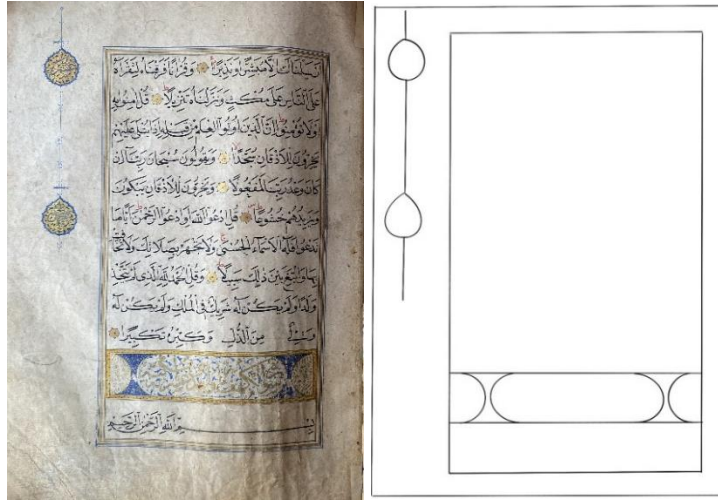 أرسلناك إلا مبشرا ونذيرا وقرآنا فرقناه لتقرأه
على الناس على مكث ونزلناه تنزيلا قل آمنوا به
أو لا تؤمنوا إن الذين أوتوا العلم من قبله إذا يتلى عليهم
يخرون للأذقان سجدا ويقولون سبحان ربنا إن
كان وعد ربنا لمفعولا ويخرون للأذقان يبكون
ويزيدهم خشوعا قل ادعوا الله أو ادعوا الرحمن أيا ما
تدعوا فله الأسماء الحسنى ولا تجهر بصلاتك ولا تخافت
بها وابتغ بين ذلك سبيلا وقل الحمد لله الذي لم يتخذ
ولدا ولم يكن له شريك في الملك ولم يكن له
ولي من الذل وكبره تكبيرا
بسم الله الرحمن الرحيم